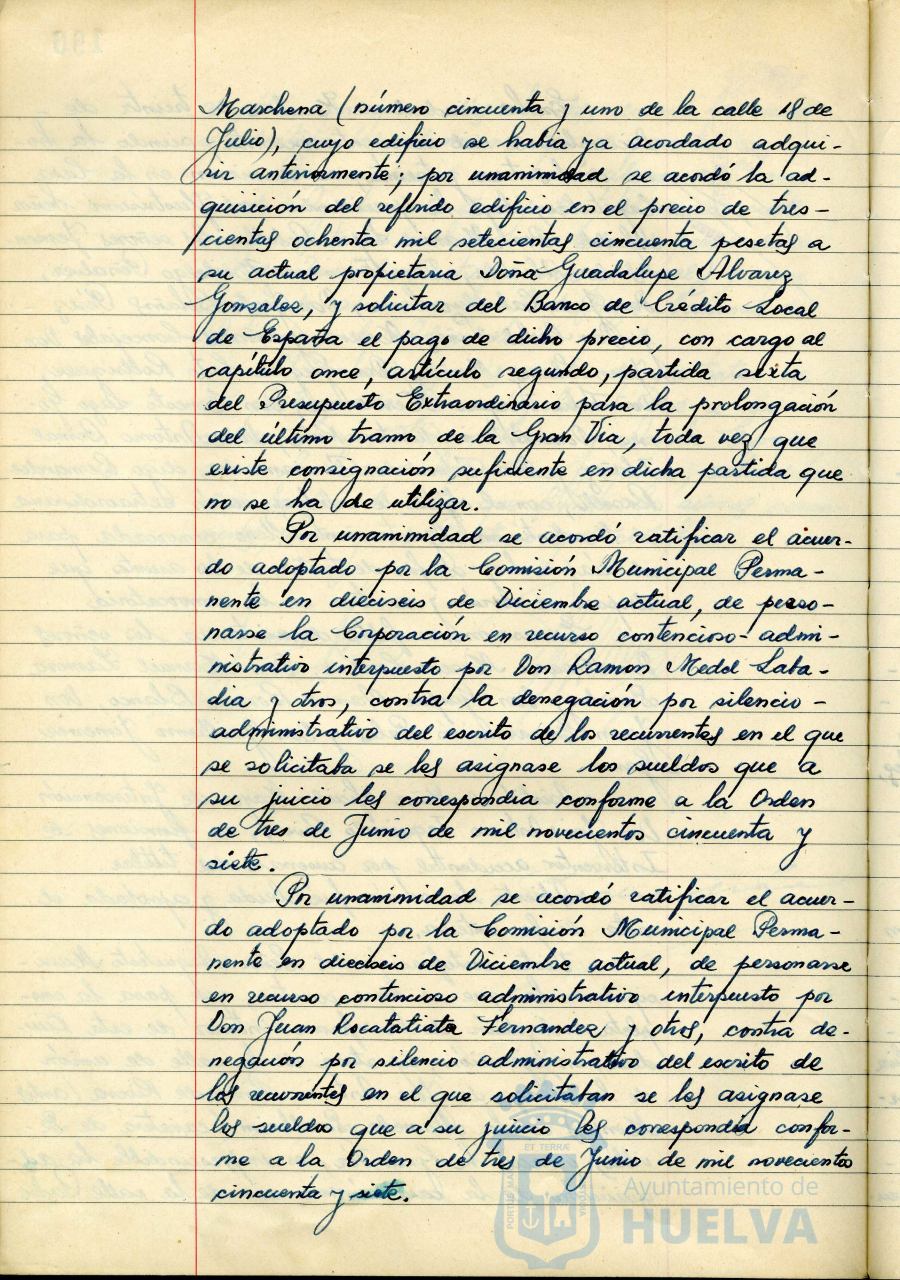 Marchena (número cincuenta y uno de la calle 18 de
Julio), cuyo edificio se habia ya acordado adqui-
rir anteriormente; por unanimidad se acordó la ad-
quisición del referido edificio en el precio de tres-
cientas ochenta mil setecientas cincuenta pesetas a
su actual propietaria Doña Guadalupe Alvarez
Gonzalez, y solicitar del Banco de Crédito Local
de España el pago de dicho precio, con cargo al
capítulo once, artículo segundo, partida sexta
del Presupuesto Extraordinario para la prolongación
del último tramo de la Gran Via, toda vez que
existe consignación suficiente en dicha partida que
no se ha de utilizar.
Por unanimidad se acordó ratificar el acuer-
do adoptado por la Comisión Municipal Perma-
nente en dieciseis de Diciembre actual, de perso-
narse la Corporación en recurso contencioso-admi-
nistrativo interpuesto por Don Ramon Medel Laba-
dia y otros, contra la denegación por silencio-
administrativo del escrito de los recurrentes en el que
se solicitaba se les asignase los sueldos que a
su juicio les correspondia conforme a la Orden
de tres de Junio de mil novecientos cincuenta y
siete.
Por unanimidad se acordó ratificar el acuer-
do adoptado por la Comisión Municipal Perma-
nente en dieciseis de Diciembre actual, de personarse
en recurso contencioso administrativo interpuesto por
Don Juan Rocatatiata Fernandez y otros, contra de-
negación por silencio administrativo del escrito de
los recurrentes en el que solicitaban se les asignase
los sueldos que a su juicio les correspondia confor-
me a la Orden de tres de Junio de mil novecientos
cincuenta y siete.
Ayuntamiento de
HUELVA